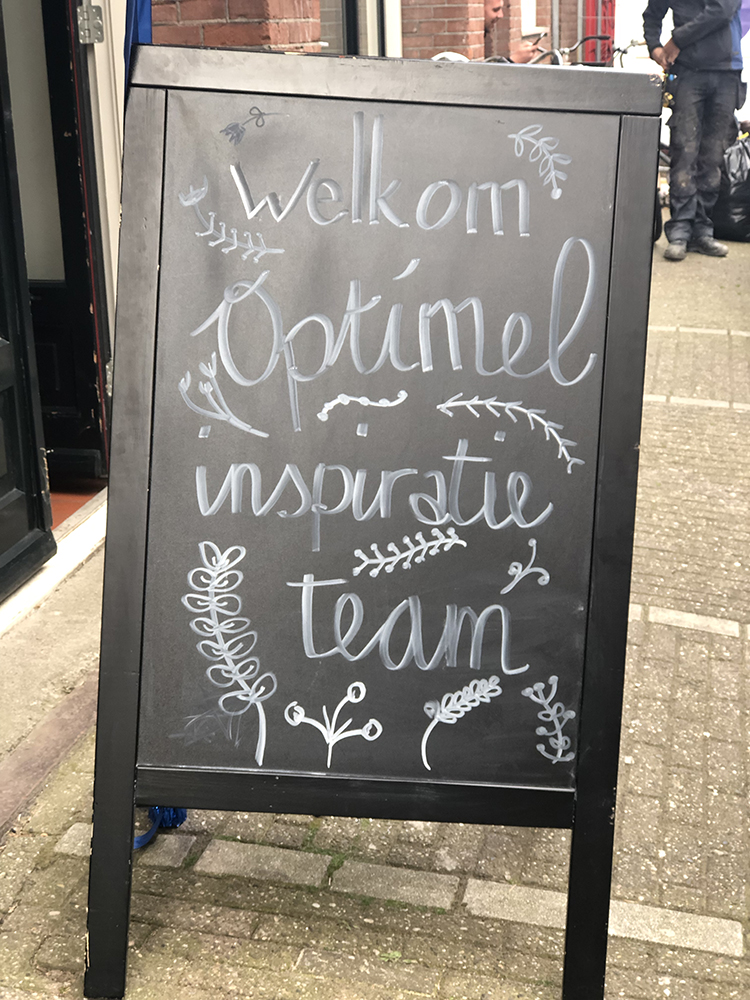 Welkom
Optimel
inspiratie
team